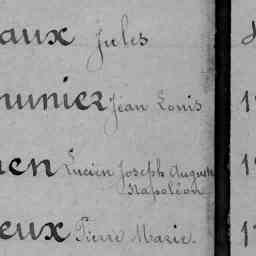 aux Jules
munier Jean Louis 1
en Lucien Joseph Auguste
Napoléon
eux Pierre Marie.